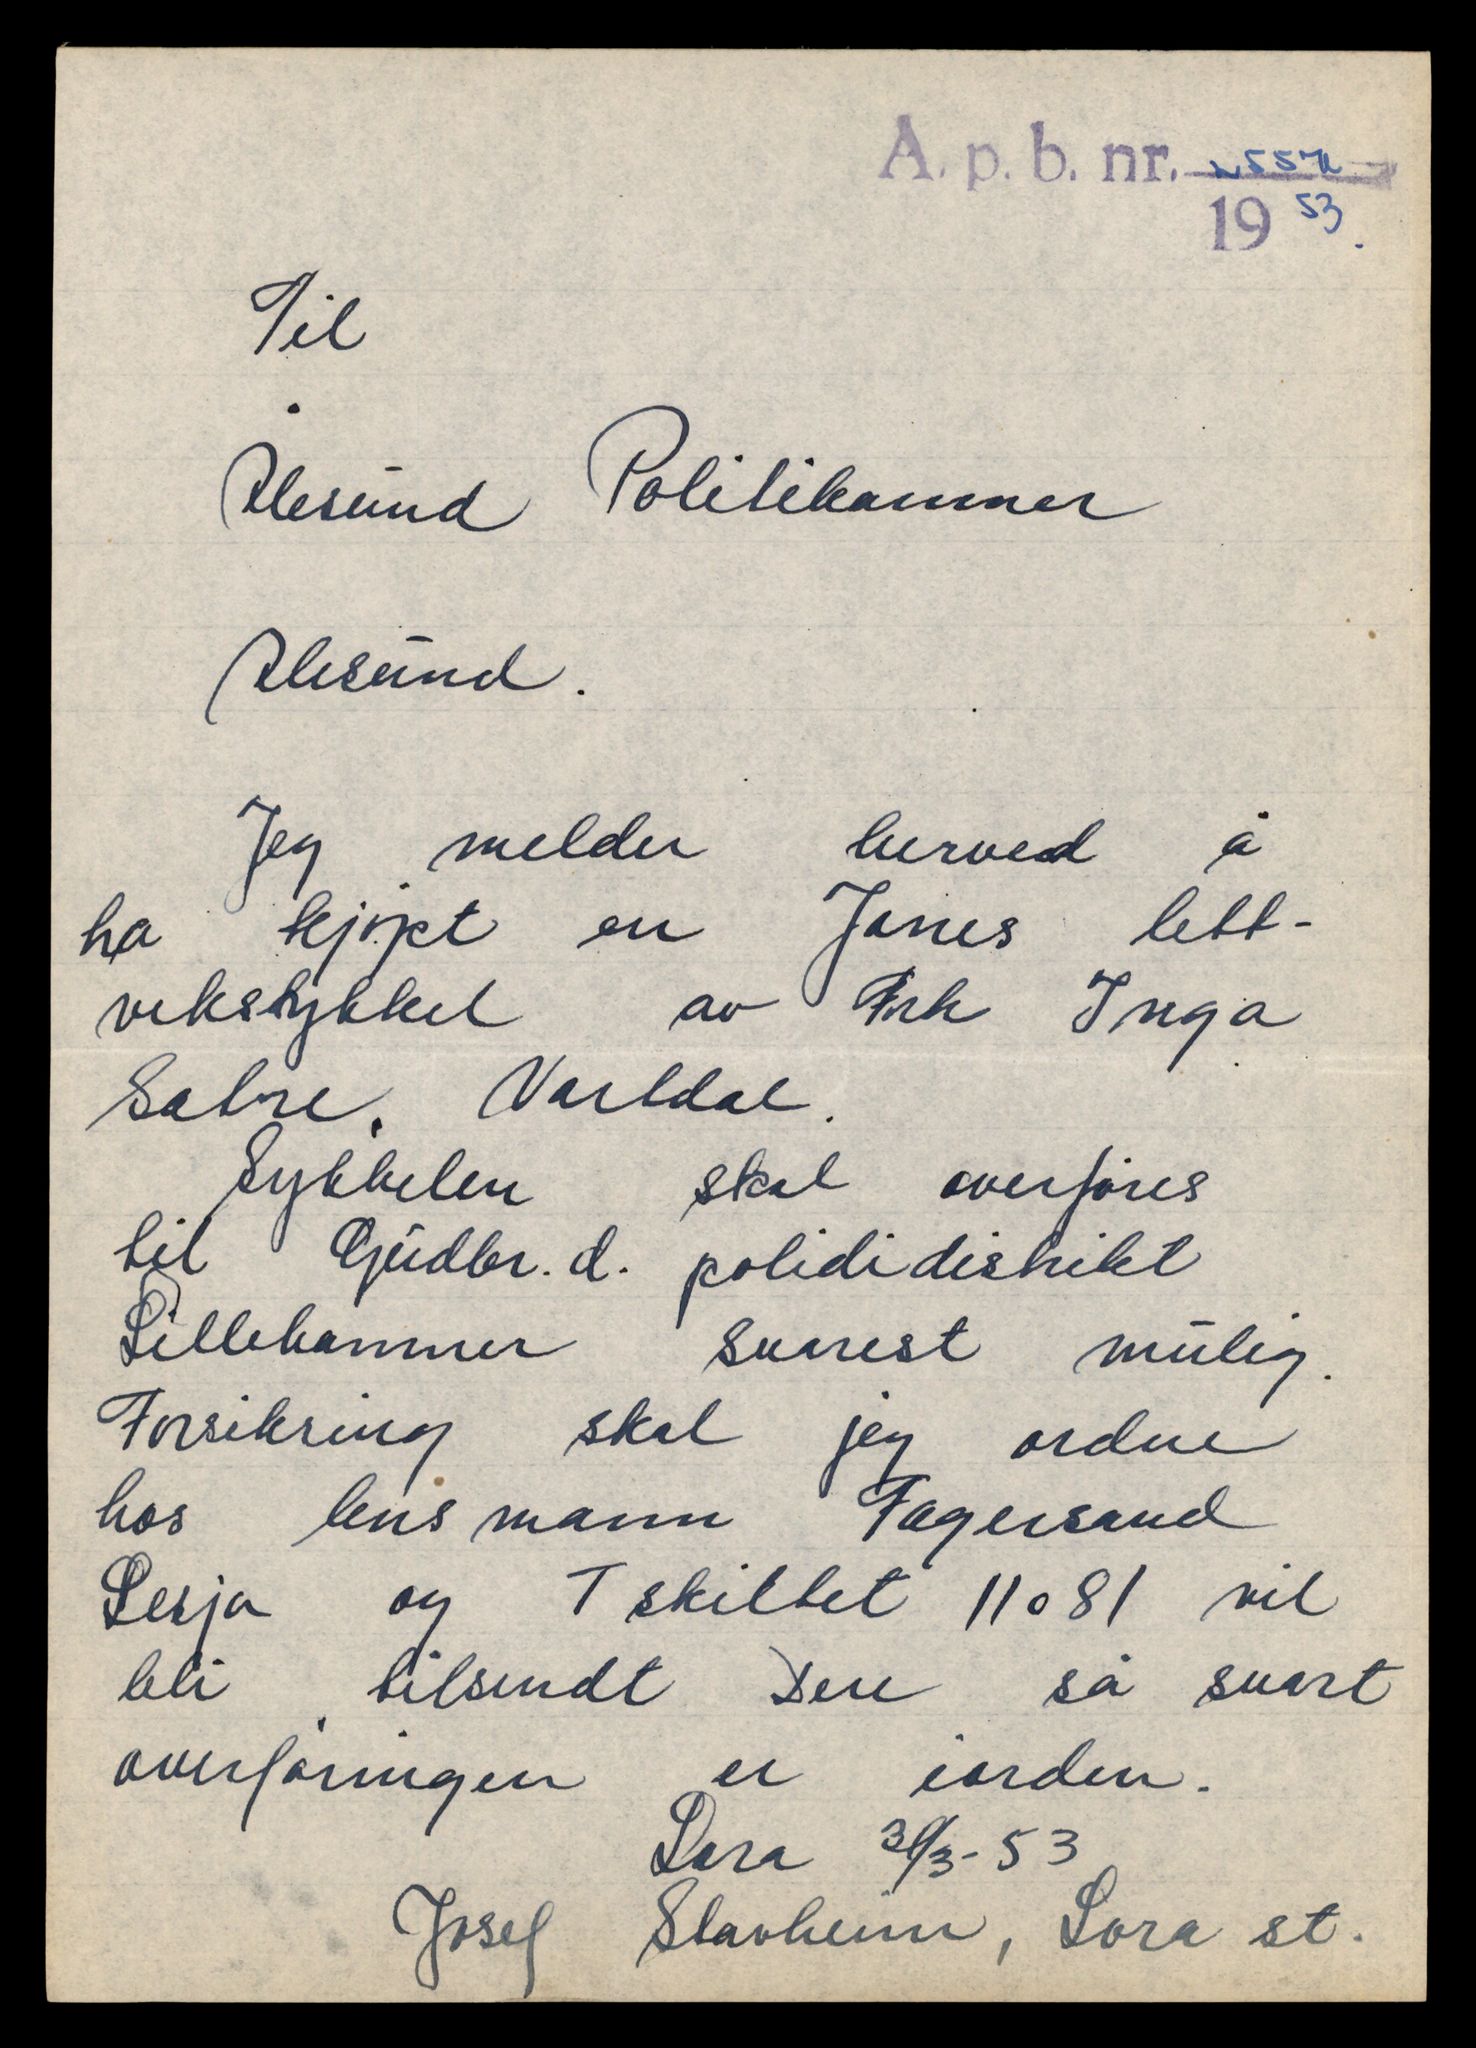 A. p. b. nr.
19 53.
Til
Ålesund Politikammer
Ålesund.
Jeg melder herved å
ha kjøpt en Jones lett-
vektsykkel av Frk Inga
Sætre, Vartdal.
Sykkelen skal overføres
til Gudbr. d. polidi distrikt
Lillehammer snarest mulig.
Forsikring skal jeg ordne
hos lensmann Fagersand
Lesja og T skiltet 11081 vil
bli tilsendt Dere så snart
overføringen er iorden.
Lora 30/3-53
Josef Stavheim, Lora st.